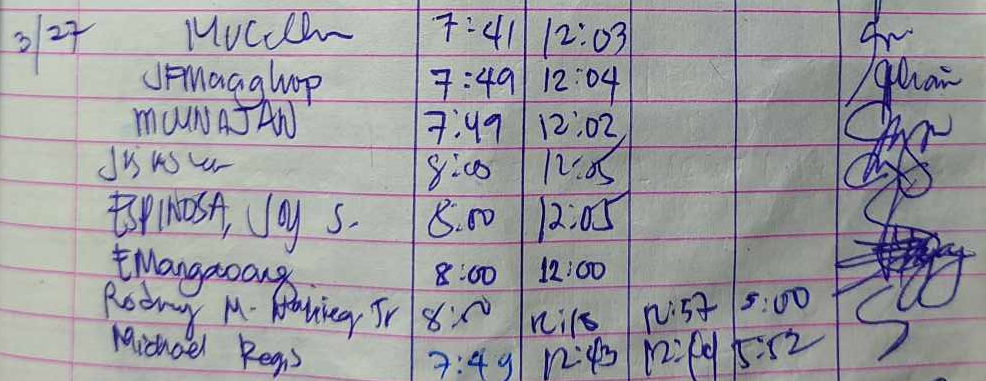 3/27 7:41 12:03
JFMacaghop 7:49 12:04
MUNAJAN 7:49 12:02
8:00 12:05
ESPINOSA, Joy S. 8:00 12:05
EMangaoang 8:00 12:00
Rodney M. Jr 8:00 12:16 12:57 5:00
Michael Regis 7:49 12:43 5:52